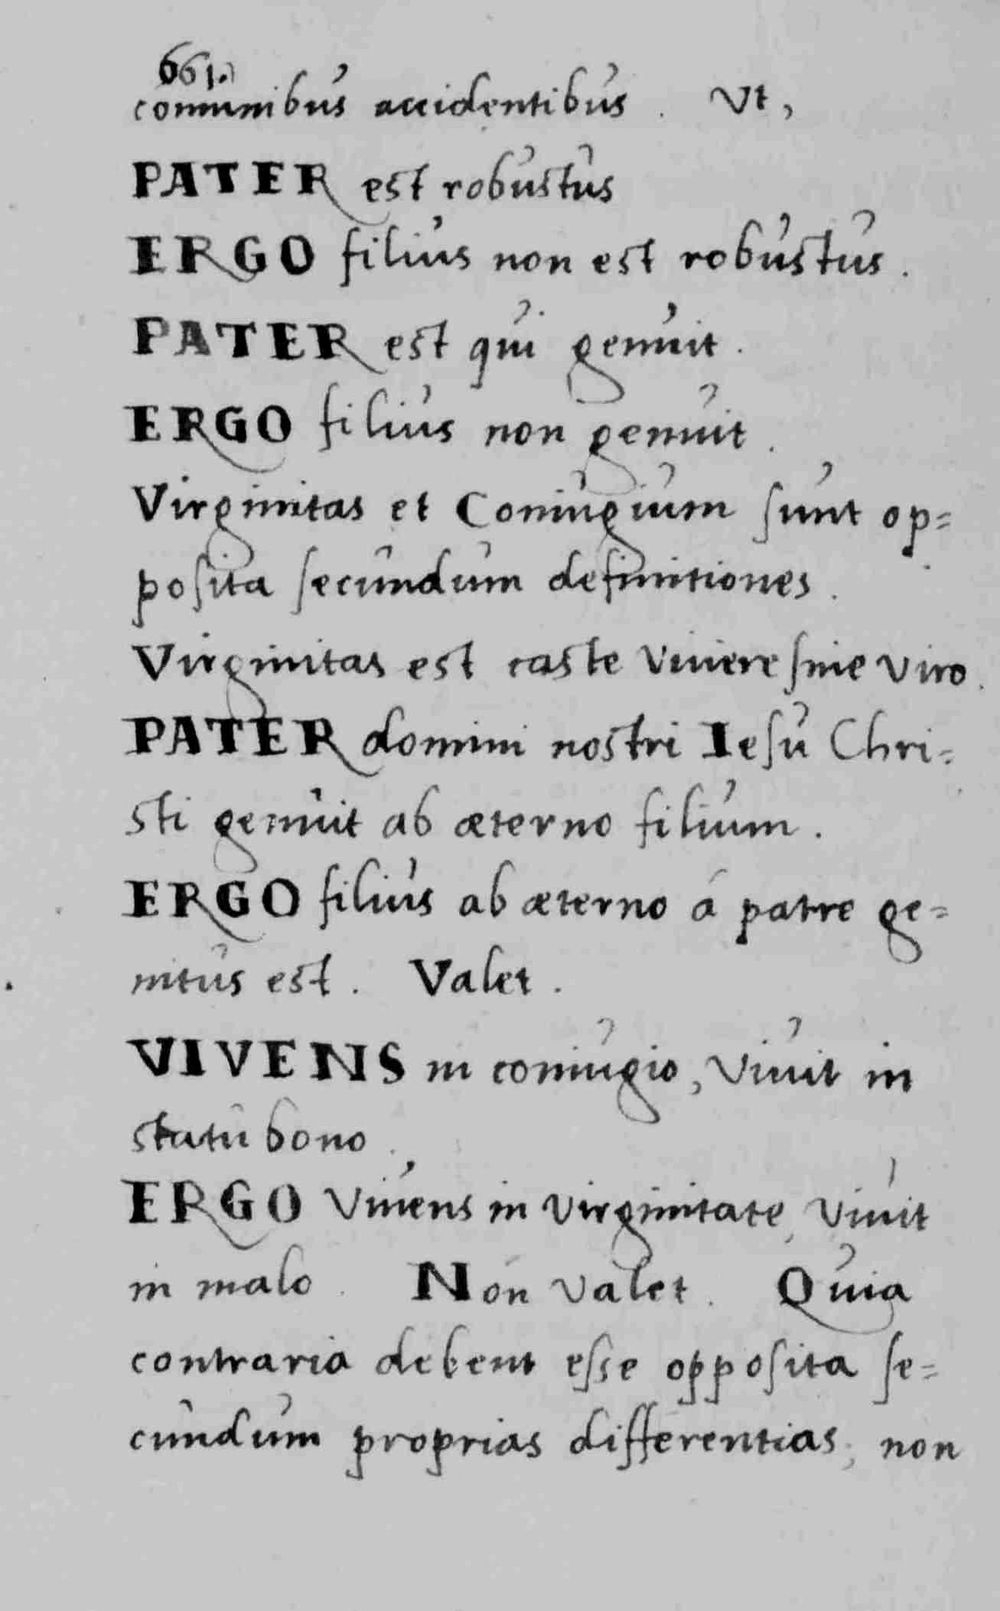 661.
comunibus accidentibus. Vt,
PATER est robustus
ERGO filius non est robustus.
PATER est qui genuit.
ERGO filius non genuit.
Virginitas et Coniugium sunt op=
posita secundum definitiones.
Virginitas est caste viuere sine viro.
PATER domini nostri Iesu Chri=
sti genuit ab æterno filium.
ERGO filius ab æterno á patre ge=
nitus est. Valet.
VIVENS in coniugio, viuit in
statu bono.
ERGO viuens in virginitate, viuit
in malo. Non valet. Quia
contraria debent esse opposita se=
cundum proprias differentias, non